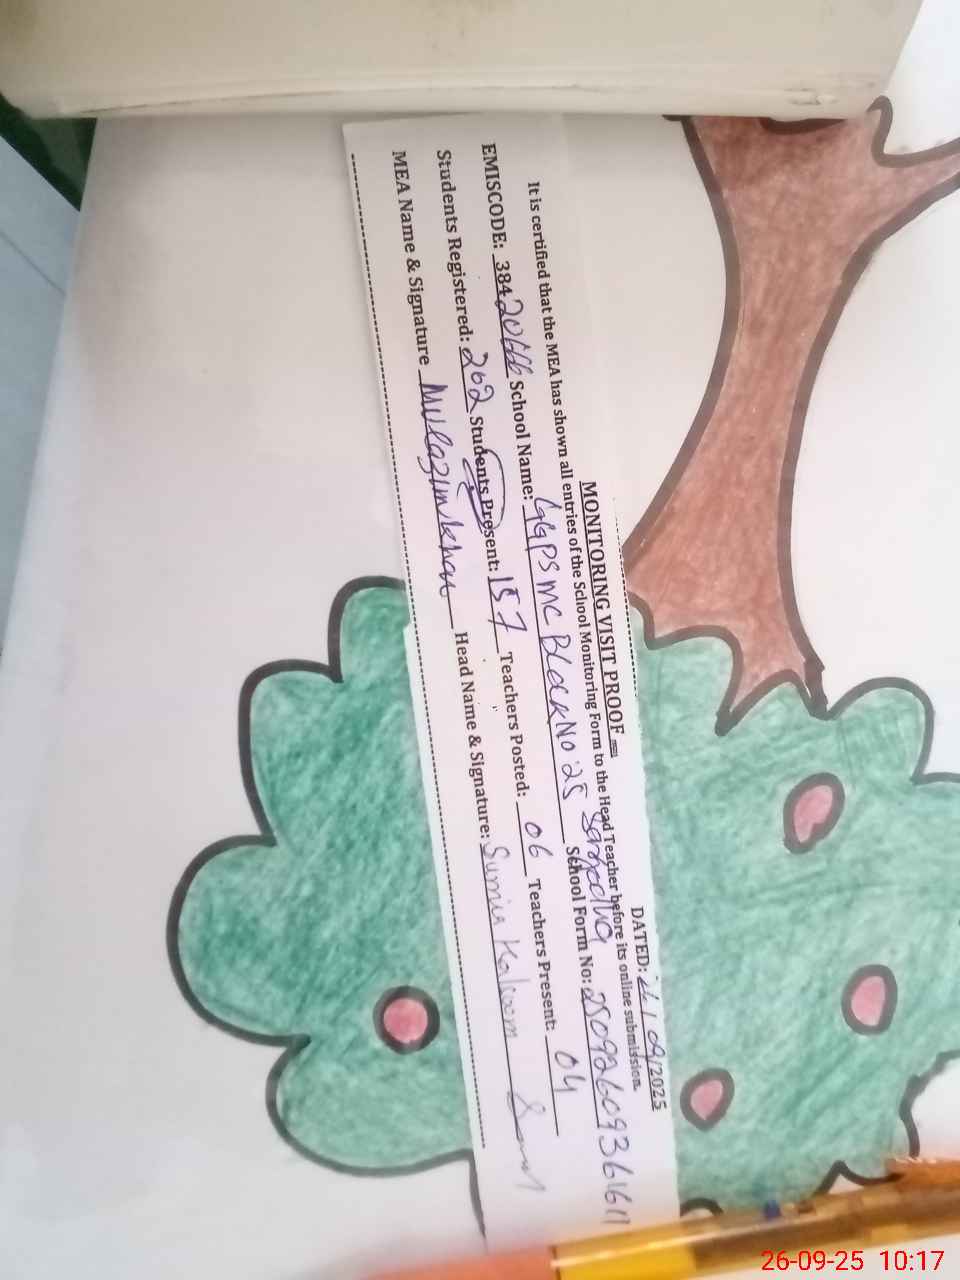 MONITORING VISIT PROOF
DATED: 26/09/2025
It is certified that the MEA has shown all entries of the School Monitoring Form to the Head Teacher before its online submission.
EMISCODE: 38420666 School Name: GGPS MC Block No 25 Sargodha School Form No: 25092609361611
Students Registered: 202 Students Present: 157 Teachers Posted: 06 Teachers Present: 04
MEA Name & Signature Mulazim khan Head Name & Signature: Sumia Kalsoom
26-09-25 10:17